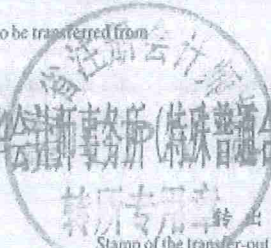 o be transferred from
省注册会计师
会计师事务所(特殊普通合
转所专用章
转 出
Stamp of the transfer-out